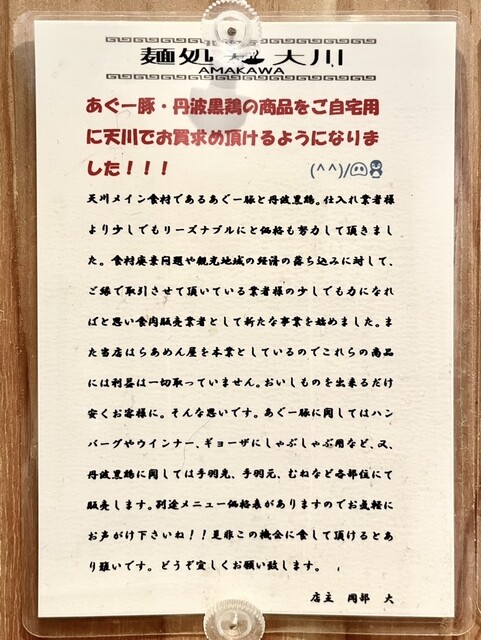 麺処 天川
AMAKAWA
あぐー豚・丹波黒鶏の商品をご自宅用
に天川でお買求め頂けるようになりま
した！！！ (^^)/
天川メイン食材であるあぐー豚と丹波黒鶏。仕入れ業者様
より少しでもリーズナブルにと価格も努力して頂きまし
た。食材廃棄問題や観光地域の経済の落ち込みに対して、
ご縁で取引させて頂いている業者様の少しでも力になれ
ばと思い食肉販売業者として新たな事業を始めました。ま
た当店はらあめん屋を本業としているのでこれらの商品
には利益は一切取っていません。おいしものを出来るだけ
安くお客様に。そんな思いです。あぐー豚に関してはハン
バーグやウインナー、ギョーザにしゃぶしゃぶ用など、又、
丹波黒鶏に関しては手羽先、手羽元、むねなど各部位にて
販売します。別途メニュー価格表がありますのでお気軽に
お声がけ下さいね！！是非この機会に食して頂けるとあ
り難いです。どうぞ宜しくお願い致します。
店主 岡部 大